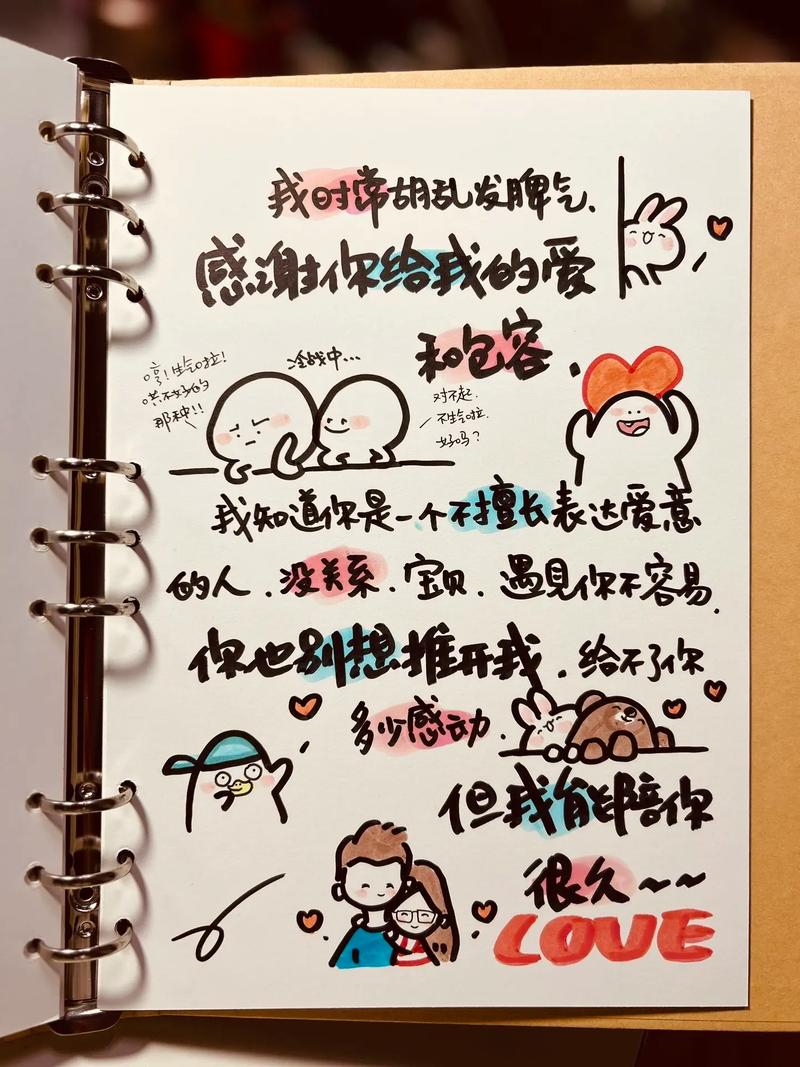 我时常胡乱发脾气、
感谢你给我的爱
和包容.
哼!生气啦!
哄不好的
那种!!
冷战中...
对不起.
不生气啦.
好吗?
我知道你是一个不擅长表达爱意
的人.没关系.宝贝.遇见你不容易.
你也别想推开我.给不了你
多少感动.
但我能陪你
很久~~
LOVE